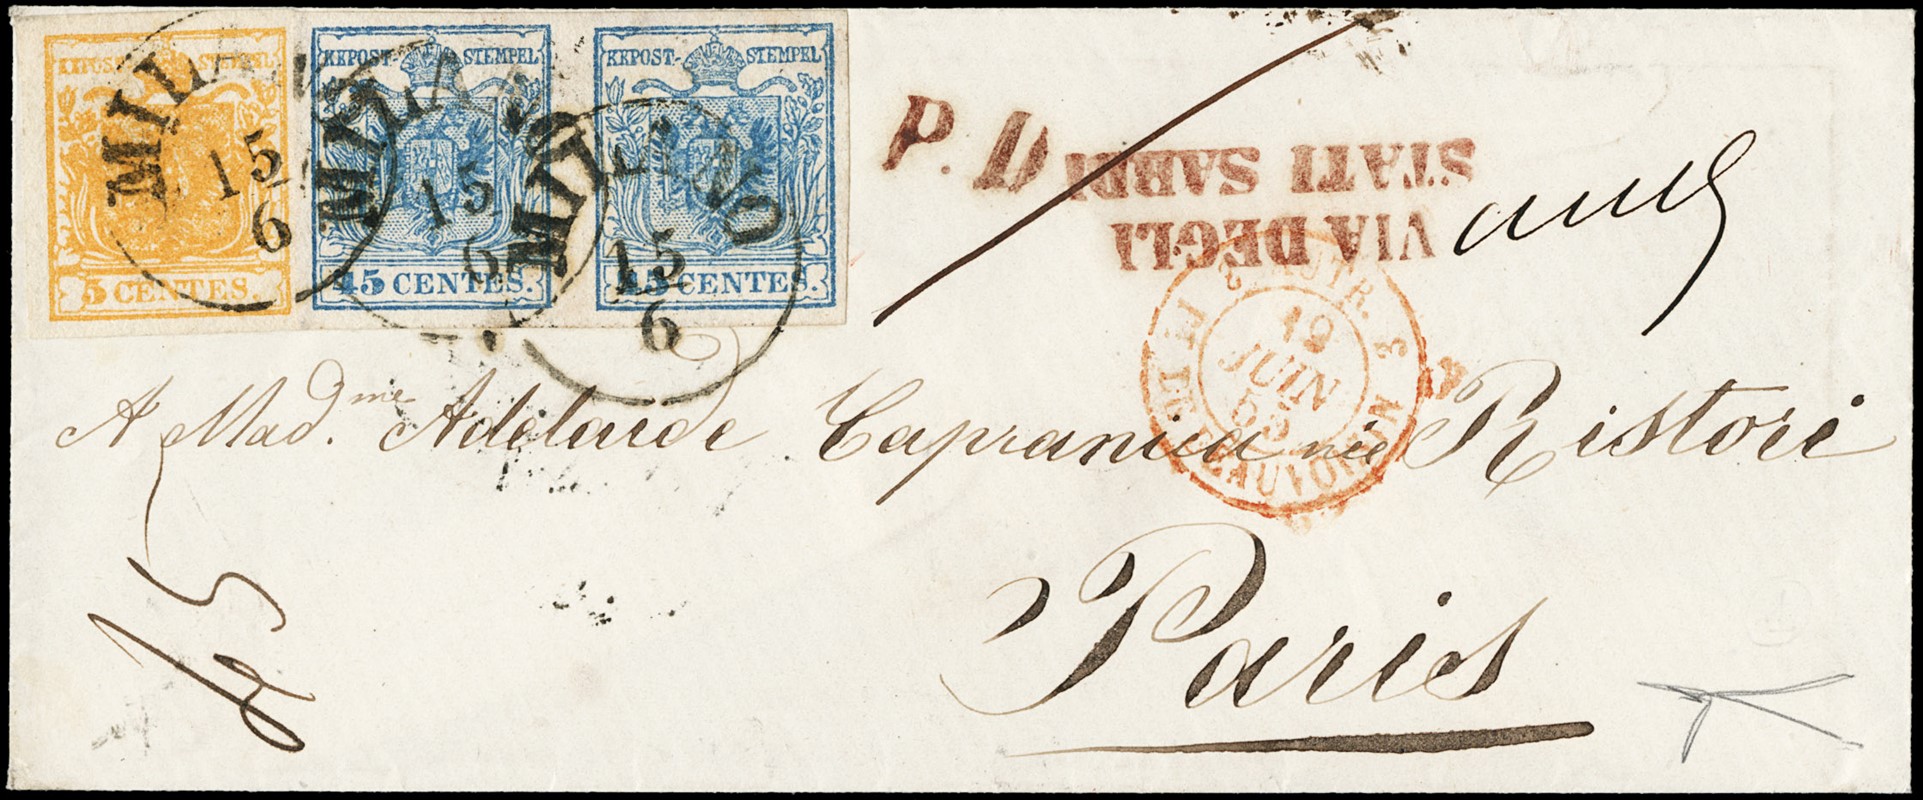 KKPOST-STEMPEL
5 CENTES.
KKPOST-STEMPEL
45 CENTES.
KKPOST-STEMPEL
45 CENTES.
MILANO
15
6
MILANO
15
6
MILANO
15
6
P.D.
VIA DEGLI
STATI SARDI
AUTR. 3
19
JUIN
55
LE PT DE BEAUVOISIN 3
A Mad.me Adelaide Capranica née Ristori
Paris